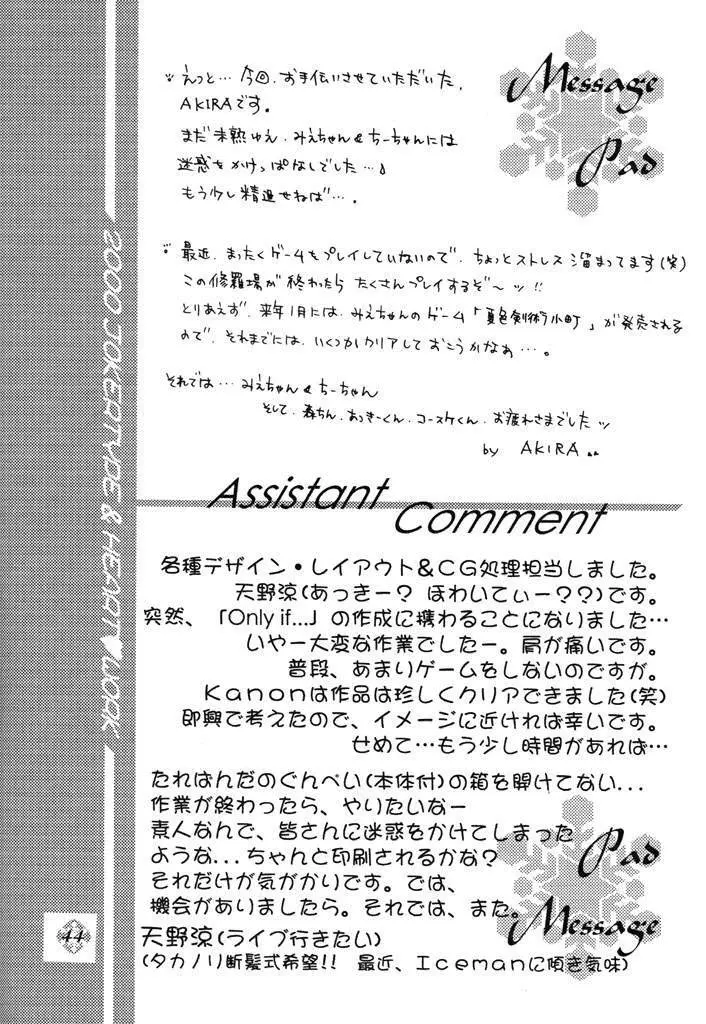 Message
Pad
えっと… 今回、お手伝いさせていただいた、
AKIRAです。
まだ未熟ゆえ、みえちゃん&ちーちゃんには
迷惑をかけっぱなしでした…♪
もう少し精進せねば…。
最近、まったくゲームもプレイしていないので、ちょっとストレス溜まってます(笑)
この修羅場が終わったら たくさんプレイするぞ〜ッ!!
とりあえず、来年1月には、みえちゃんのゲーム「夏色剣術小町」が発売される
ので、それまでには、いくつかクリアしておこうかなぁ…。
それでは… みえちゃん&ちーちゃん
そして、森ちん、あっきーくん、コースケくん、お疲れさまでしたッ
by AKIRA
2000 JOKERTYPE & HEART♥WORK
Assistant
Comment
各種デザイン・レイアウト&CG処理担当しました。
天野涼(あっきー? ほわいてぃー??)です。
突然、「Only if...」の作成に携わることになりました…
いやー大変な作業でしたー。肩が痛いです。
普段、あまりゲームをしないのですが。
Kanonは作品は珍しくクリアできました(笑)
即興で考えたので、イメージに近ければ幸いです。
せめて…もう少し時間があれば…
たれぱんだのぐんぺい(本体付)の箱を開けてない...
作業が終わったら、やりたいなー
素人なんで、皆さんに迷惑をかけてしまった
ような...ちゃんと印刷されるかな?
それだけが気がかりです。では、
機会がありましたら。それでは、また。
天野涼(ライブ行きたい)
(タカノリ断髪式希望!! 最近、Icemanに傾き気味)
Pad
Message
44